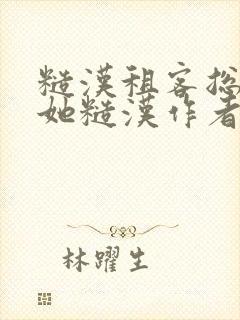 糙漢租客总
她糙漢作者
林躍生